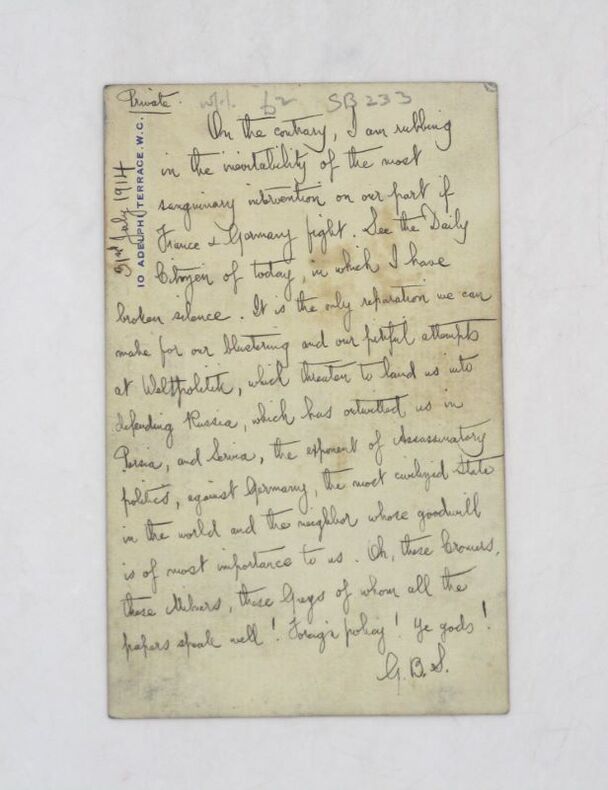 Private.
SB 233
10 ADELPHI TERRACE. W.C.
31st July 1914
On the contrary, I am rubbing
in the inevitability of the most
sanguinary intervention on our part if
France & Germany fight. See the Daily
Citizen of today, in which I have
broken silence. It is the only reparation we can
make for our blustering and our pitiful attempts
at Weltpolitik, which threaten to land us into
defending Russia, which has outwitted us in
Persia, and Servia, the exponent of Assassinatory
politics, against Germany, the most civilized State
in the world and the neighbor whose goodwill
is of most importance to us. Oh, these Cromers,
these Milners, these Greys of whom all the
papers speak well! Foreign policy! Ye gods!
G.B.S.